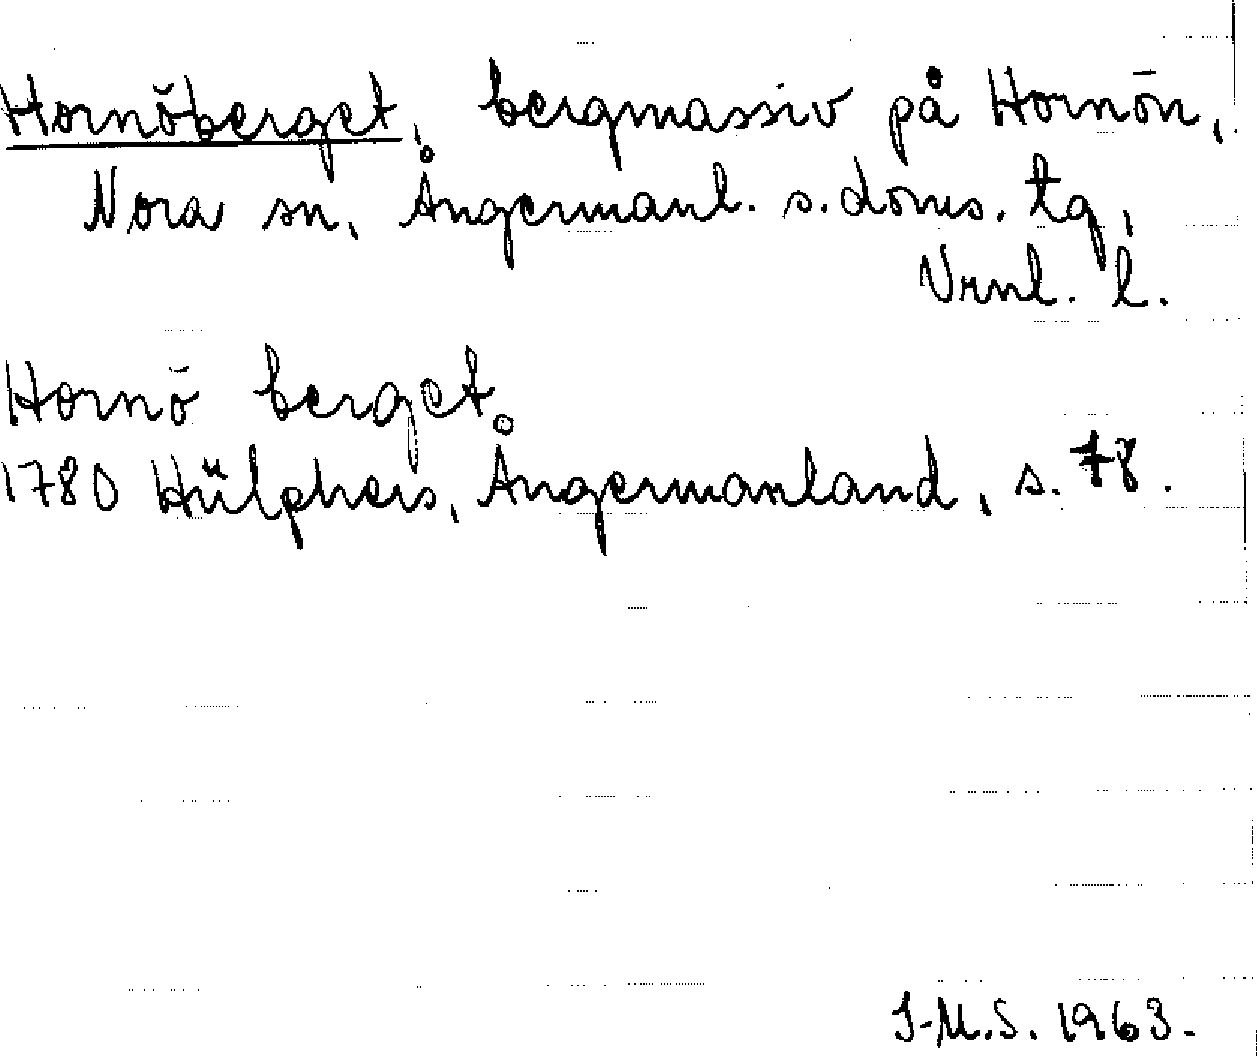 Hornöberget, bergmassiv på Hornön,
Nora sn, Ångermanl. s. doms. tg,
Vrnl. l.
Hornö berget.
1780 Hülphers, Ångermanland, s. 78.
I-M.S. 1963.